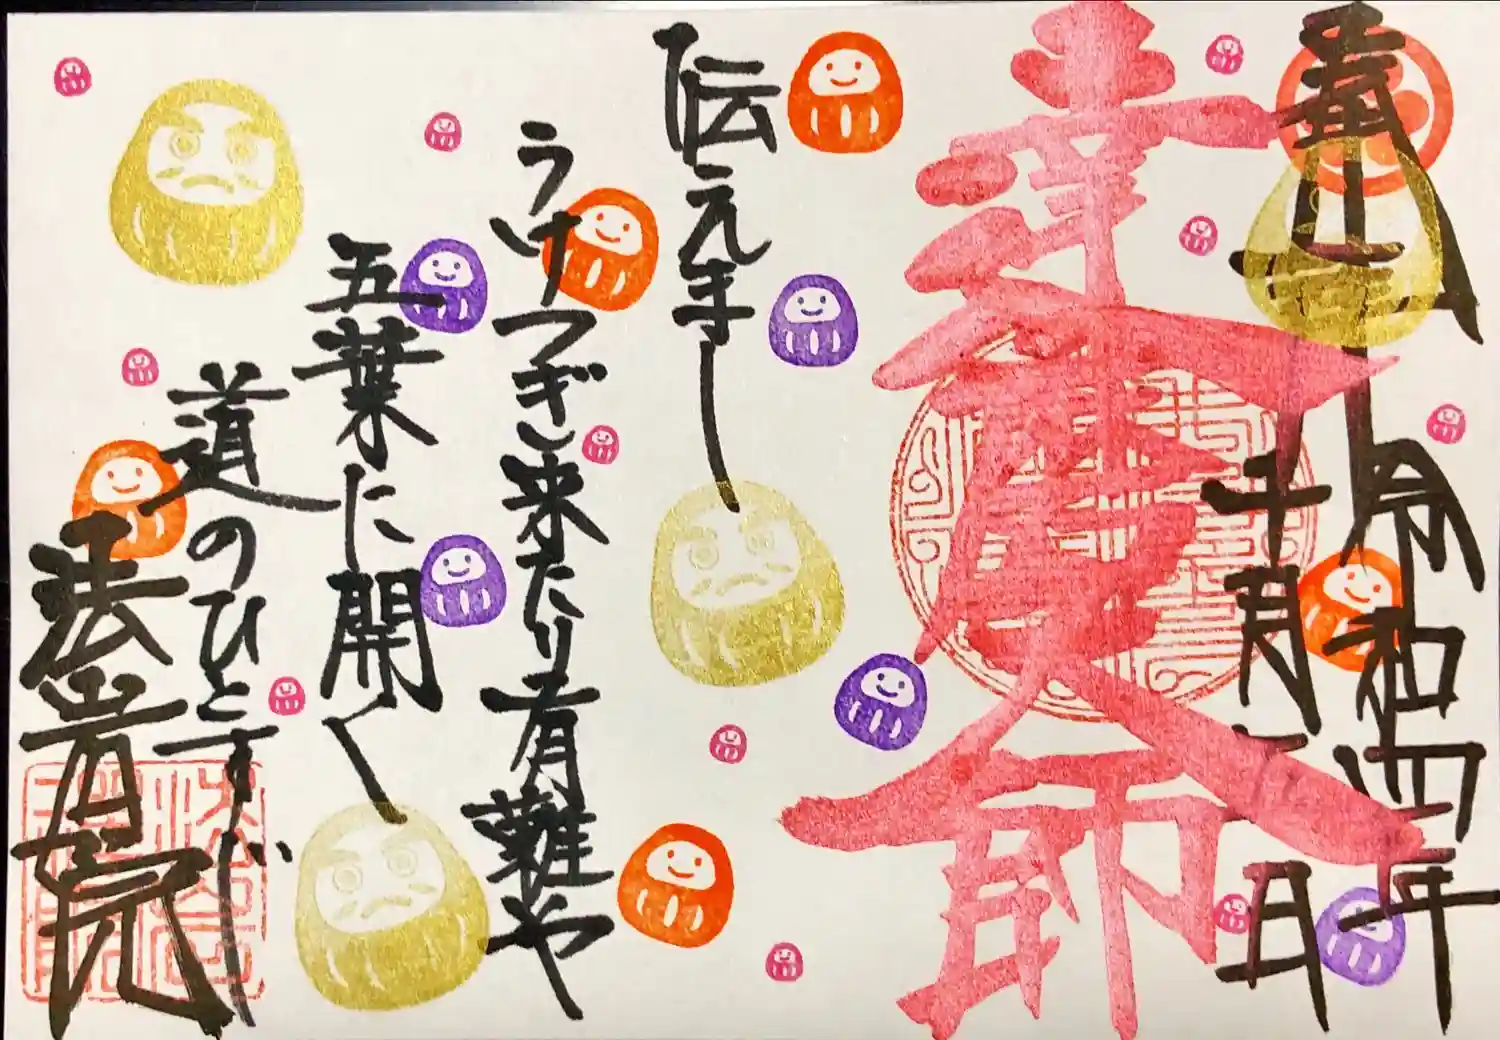 奉拝 令和四年
十月 日
達磨大師
伝えまし
うけつぎ来たり有難や
五葉に開く
道のひとすじ